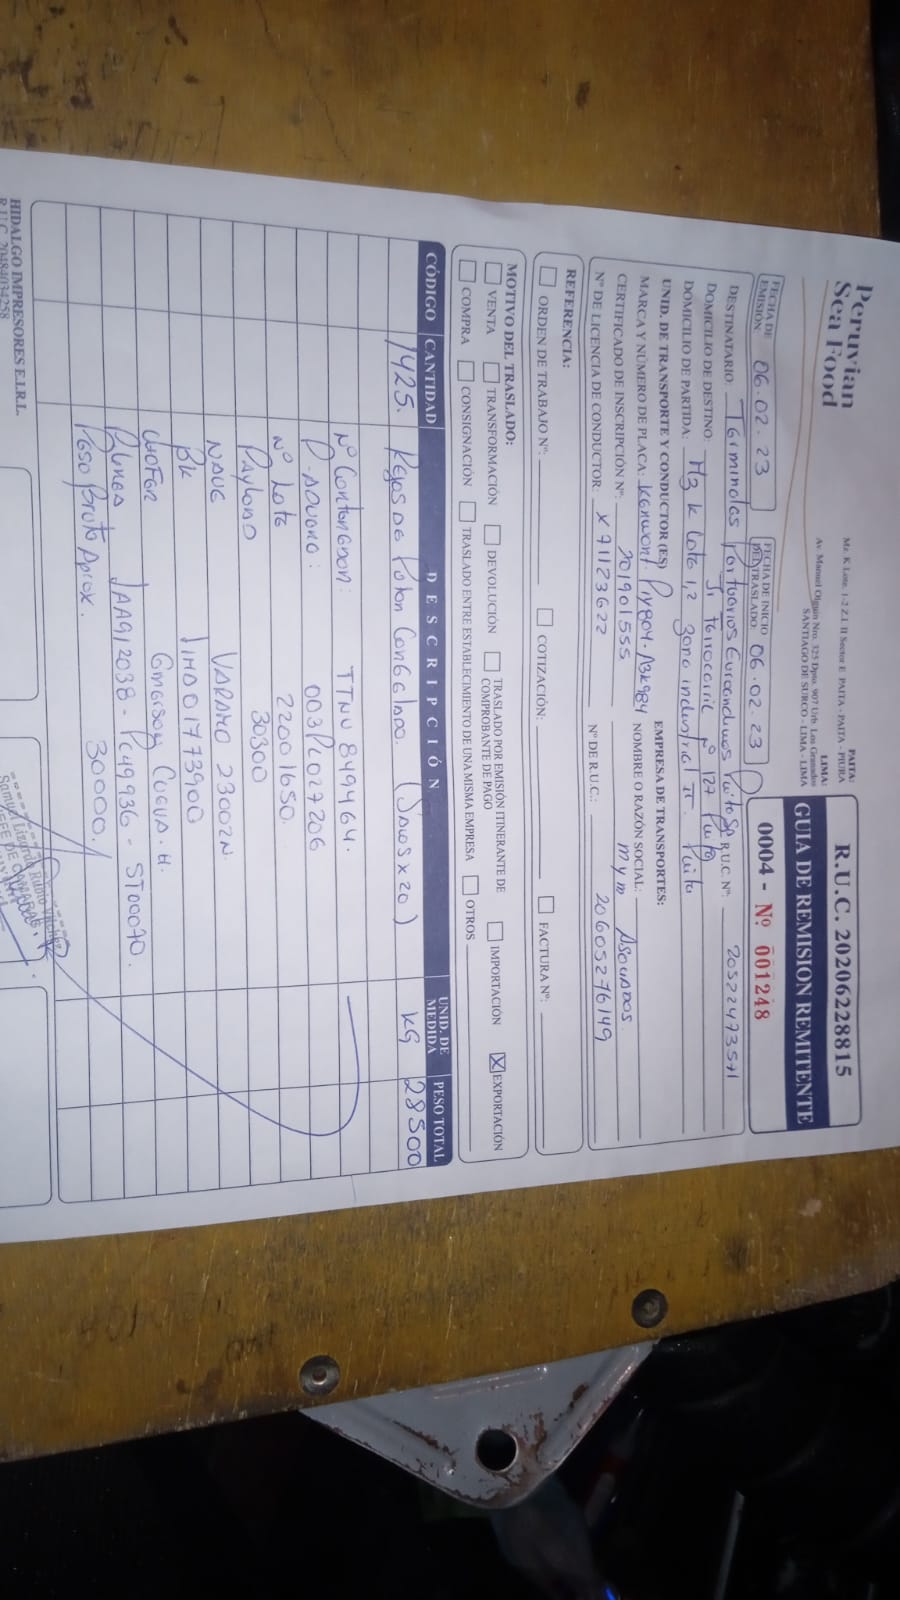 Peruvian
Sea Food
PAITA:
Mz. K Lote. 1-2 Z.I. II Sector E PAITA - PAITA - PIURA
LIMA:
Av. Manuel Olguin Nro. 325 Dpto. 907 Urb. Los Granados
SANTIAGO DE SURCO - LIMA - LIMA
R.U.C. 20206228815
GUIA DE REMISION REMITENTE
0004 - Nº 001248
FECHA DE EMISIÓN: 06.02.23
FECHA DE INICIO DEL TRASLADO: 06.02.23
DESTINATARIO: Terminales Portuarios Euroandinos Paita SA R.U.C. Nº: 20522473571
DOMICILIO DE DESTINO: Jr ferrocarril Nº 127 Paita
DOMICILIO DE PARTIDA: Mz K Lote 1,2 Zona industrial II. Paita
UNID. DE TRANSPORTE Y CONDUCTOR (ES) EMPRESA DE TRANSPORTES:
MARCA Y NÚMERO DE PLACA: Kenwort NOMBRE O RAZÓN SOCIAL: mym
CERTIFICADO DE INSCRIPCIÓN Nº: 201901555
Nº DE LICENCIA DE CONDUCTOR: X71123622 Nº DE R.U.C.: 20605276149
REFERENCIA:
ORDEN DE TRABAJO Nº: COTIZACIÓN: FACTURA Nº:
MOTIVO DEL TRASLADO:
VENTA TRANSFORMACIÓN DEVOLUCIÓN TRASLADO POR EMISIÓN ITINERANTE DE COMPROBANTE DE PAGO IMPORTACIÓN X EXPORTACIÓN
COMPRA CONSIGNACIÓN TRASLADO ENTRE ESTABLECIMIENTO DE UNA MISMA EMPRESA OTROS
CÓDIGO CANTIDAD DESCRIPCIÓN UNID. DE MEDIDA PESO TOTAL
1425. Rejos de Poton Congelado. (Sacos x 20) KG 28500
Nº Contenedor: TTNU 849946 4.
P. Aduana: 003PL027206
Nº Lote 2201650.
Payload 30300
NAVE VARAMO 2300 2N.
BK LIMA01773900
CHOFER Emerson H.
Lineas AAA912038 - PL49936 - ST00070.
Peso Bruto Aprox. 30000.
HIDALGO IMPRESORES E.I.R.L.
R.U.C. 20484034258
Samuel Lizardo Rubio
JEFE DE CAMARAS